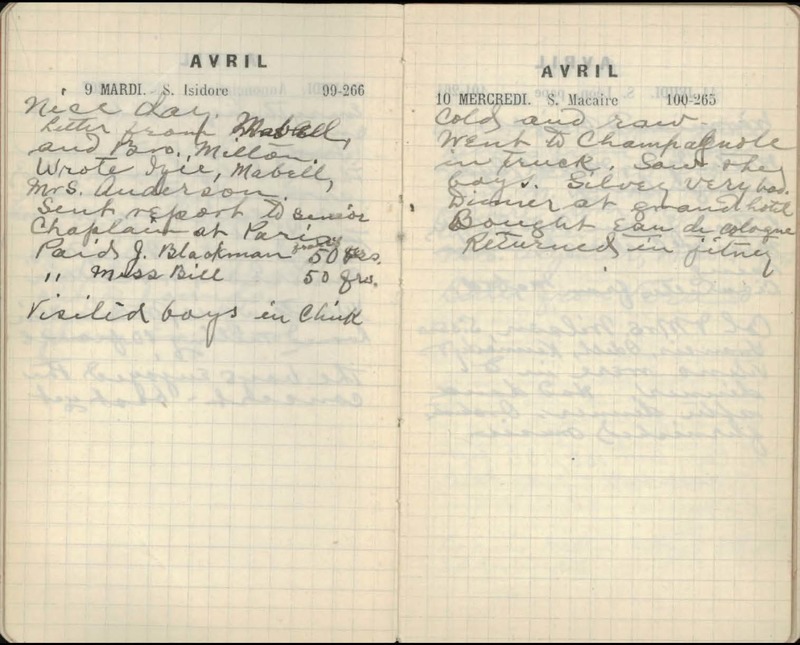 AVRIL
9 MARDI. S. Isidore 99-266
Nice day.
Letter from Mabell,
and Bro. Milton.
Wrote Izie, Mabell,
Mrs. Anderson.
Sent report to senior
Chaplain at Paris
Paid J. Blackman 50 frs.
" Miss Bill 50 frs.
Visitid boys in Clink
AVRIL
10 MERCREDI. S. Macaire 100-265
Cold and raw.
Went to Champagnole
in truck. Saw the
boys. Silvey very bad.
Dinner at grand hotel
Bought Eau de cologne
Returned in jitney